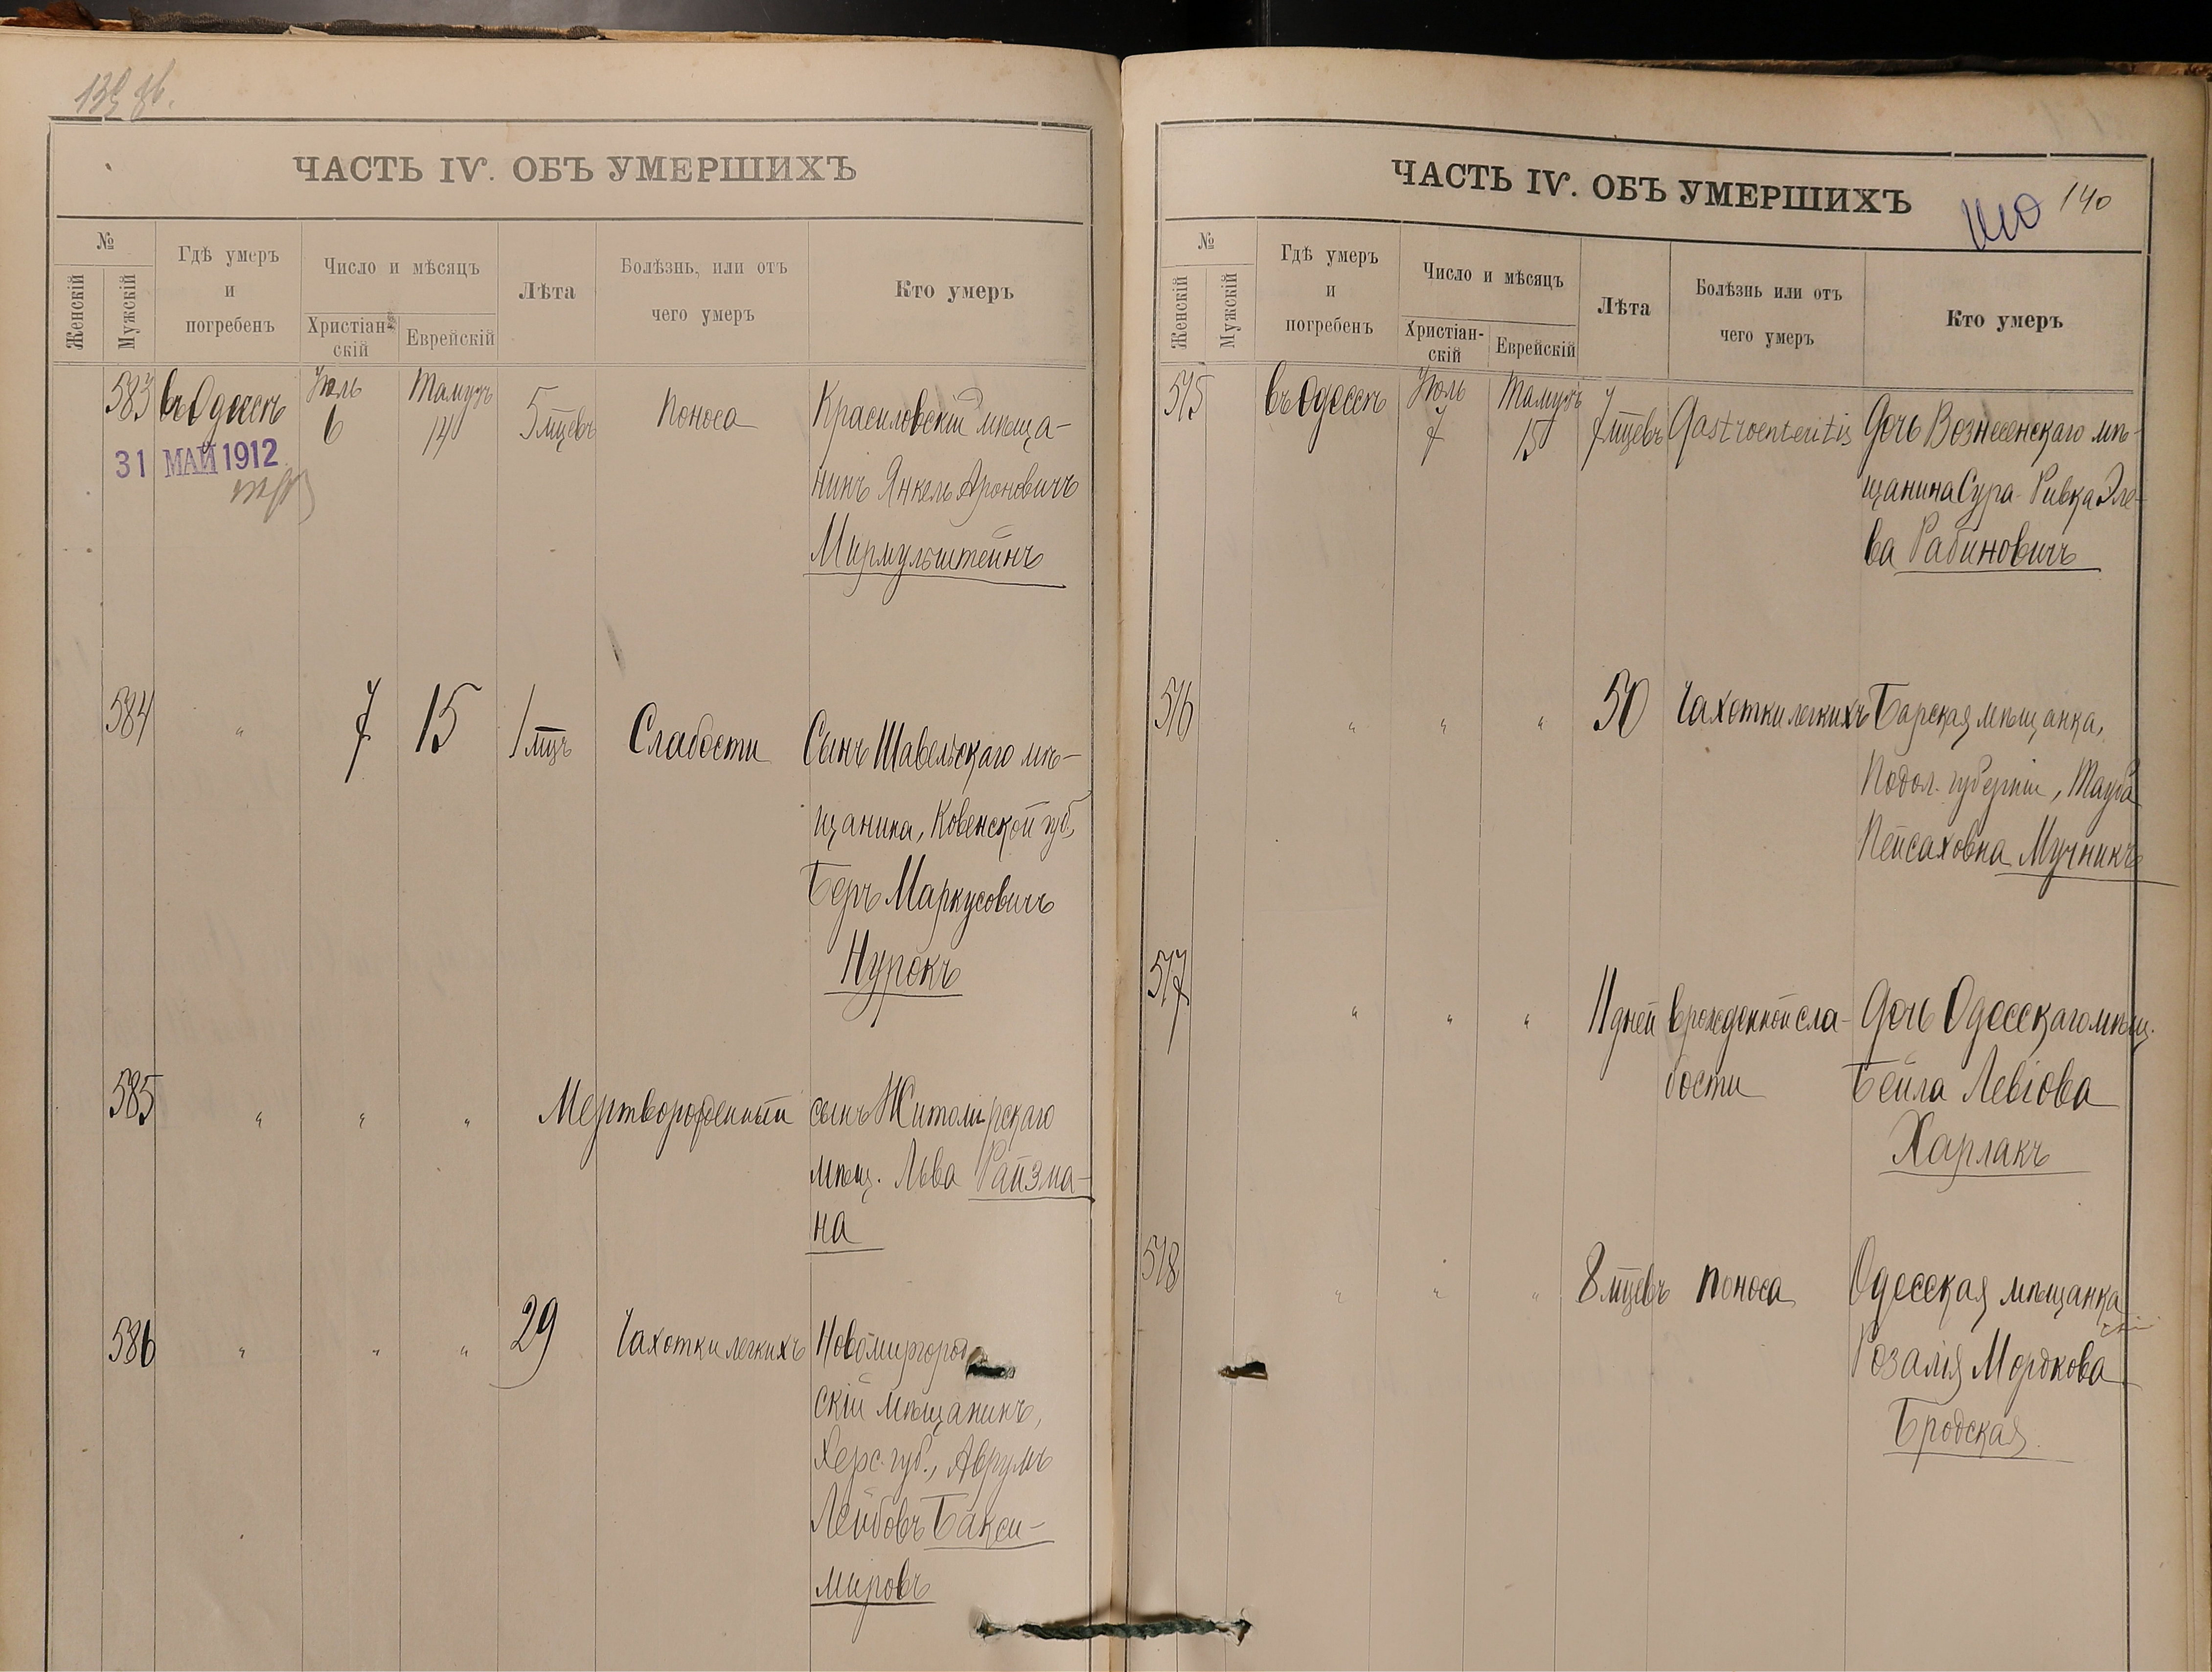 ЧАСТЬ IV. ОБЪ УМЕРШИХЪ
№
Женскій
Мужскій
Гдѣ умеръ
и
погребенъ
Число и мѣсяцъ
Христіан-
скій
Еврейскій
Лѣта
Болѣзнь, или отъ
чего умеръ
Кто умеръ
583 въ Одессѣ Іюль 6 Тамузъ 14 5 мцевъ поноса Красиловскій мѣща-
нинъ Янкель Ароновичъ
Мирмульштейнъ
31 МАЙ 1912
584 " 7 15 1 мцъ Слабости Сынъ Шавельскаго мѣ-
щанина, Ковенской губ.
Беръ Маркусовичъ
Нурокъ
585 " " " Мертворожденный сынъ Житомирскаго
мѣщ. Льва Райзма-
на
586 " " " 29 Чахотки легкихъ Новомиргород
скій мѣщанинъ,
Херс. губ., Аврумъ
Лейбовъ Бакси-
мировъ
ЧАСТЬ IV. ОБЪ УМЕРШИХЪ
140
№
Женскій
Мужскій
Гдѣ умеръ
и
погребенъ
Число и мѣсяцъ
Христіан-
скій
Еврейскій
Лѣта
Болѣзнь или отъ
чего умеръ
Кто умеръ
515 въ Одессѣ Іюль 7 Тамузъ 15 7 мцевъ Gastroenteritis Дочь Вознесенскаго мѣ-
щанина Сура-Ривка Эле-
ва Рабиновичъ
516 " " " 50 Чахотки легкихъ Барская мѣщанка,
Подол. губерніи, Тауба
Пейсаховна Мучникъ
517 " " " 11 дней врожденной сла- Дочь Одесскаго мѣщ.
бости Бейла Левіова
Харлакъ
518 " " " 8 мцевъ поноса Одесская мѣщанка
Розалія Мордкова
Бродская